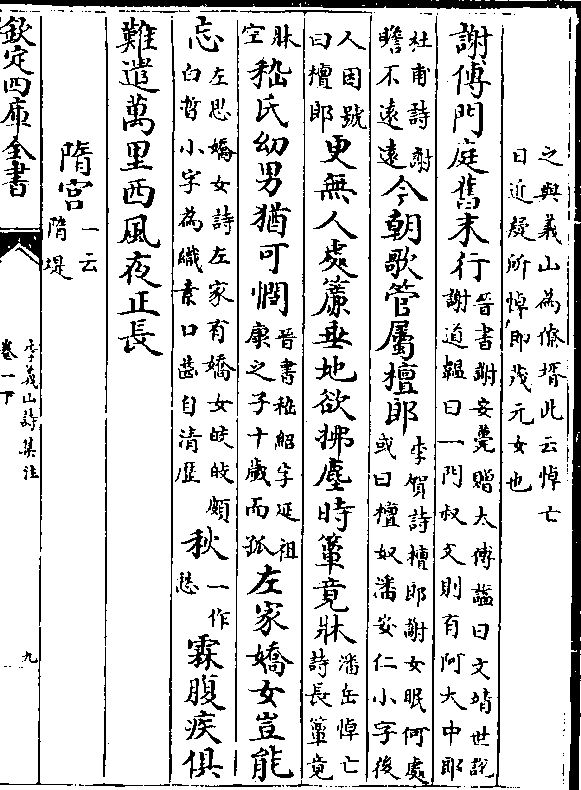 之與義山為僚壻此云悼亡
日近疑所悼即茂元女也
謝傅門庭舊末行晉書謝安薨贈太傅諡曰文靖世說
謝道韞曰一門叔父則有阿大中郎
杜甫詩謝
瞻不遠遠今朝歌管屬檀郎李賀詩檀郎謝女眠何處
或曰檀奴潘安仁小字後
人因號
曰檀郎更無人處簾垂地欲拂塵時簟竟牀潘岳悼亡
詩長簟竟
牀
空嵇氏幼男猶可憫晉書嵇紹字延祖
康之子十歲而孤左家嬌女豈能
忘左思嬌女詩左家有嬌女皎皎頗
白晳小字為織素口齒自清歷秋一作
愁霖腹疾俱
難遣萬里西風夜正長
隋宮一云
隋堤
欽定四庫全書
李義山詩集注
卷一下
九